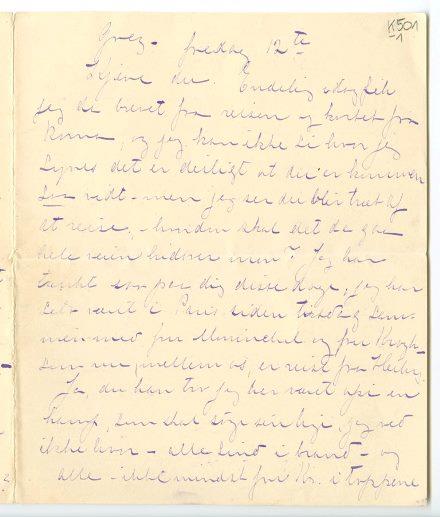 K 501
1
Grez - fredag 12te
Kjære du. Endelig idag fik
jeg de brevet fra reisen og kortet fra
Roma, og jeg kan ikke si hvor jeg
synes det er deiligt at du er kommen
saa vidt - men jeg ser du blir træt af
at reise, - hvordan skal det da gaa
hele veien hidover men? Jeg har
tænkt paa dig disse dage, jeg har
selv været i Paris siden tirsdag sam-
men med fru Munichel og fru Krogh
som nu, mellem os, er reist fra
Ja, du kan tro jeg har været opi en
kamp, som skal søge sin lige, jeg ved
ikke hvor - alle sind i brand - og
alle - ikke mindst fru Kr. i toppene
2